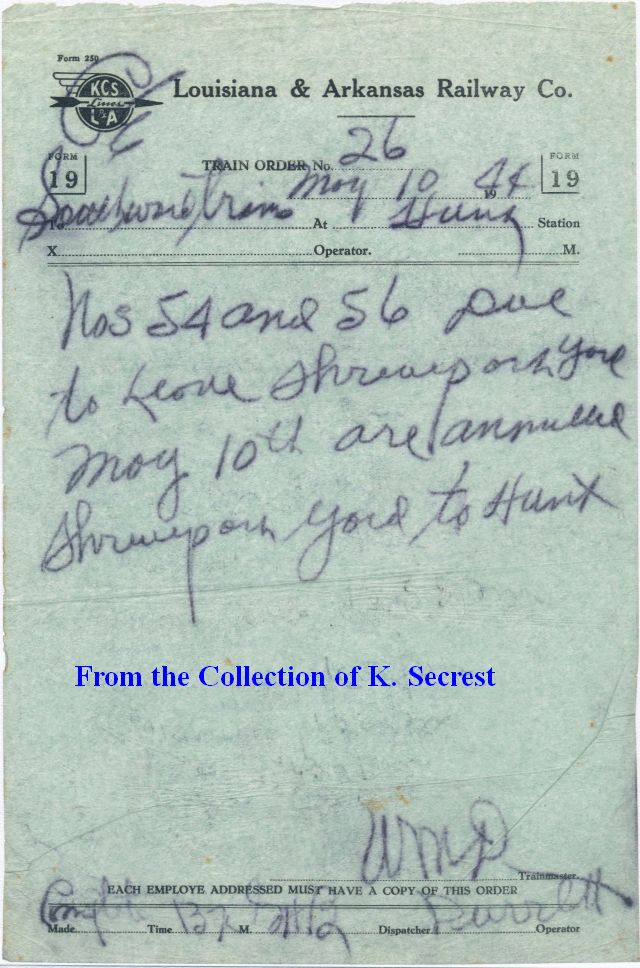 Form 250
KCS
Lines
L&A
Louisiana & Arkansas Railway Co.
FORM
19
TRAIN ORDER No. 26
FORM
19
May 10 1944
To Southward trains At Hunt Station
X Operator. M.
Nos 54 and 56 Due
to Leave Shreveport Yard
May 10th are annulled
Shreveport Yard to Hunt
From the Collection of K. Secrest
WMD
Trainmaster.
EACH EMPLOYE ADDRESSED MUST HAVE A COPY OF THIS ORDER
Made Time M. Dispatcher Operator